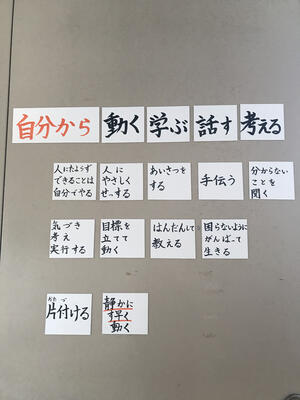 自分から
動く
学ぶ
話す
考える
人にたよらず
できることは
自分でやる
人に
やさしく
せっする
あいさつを
する
手伝う
分からない
ことを
聞く
気づき
考え
実行する
目標を
立てて
動く
はんだんして
教える
困らないように
がんばって
生きる
かたづ
片付ける
静かに
す早く
動く